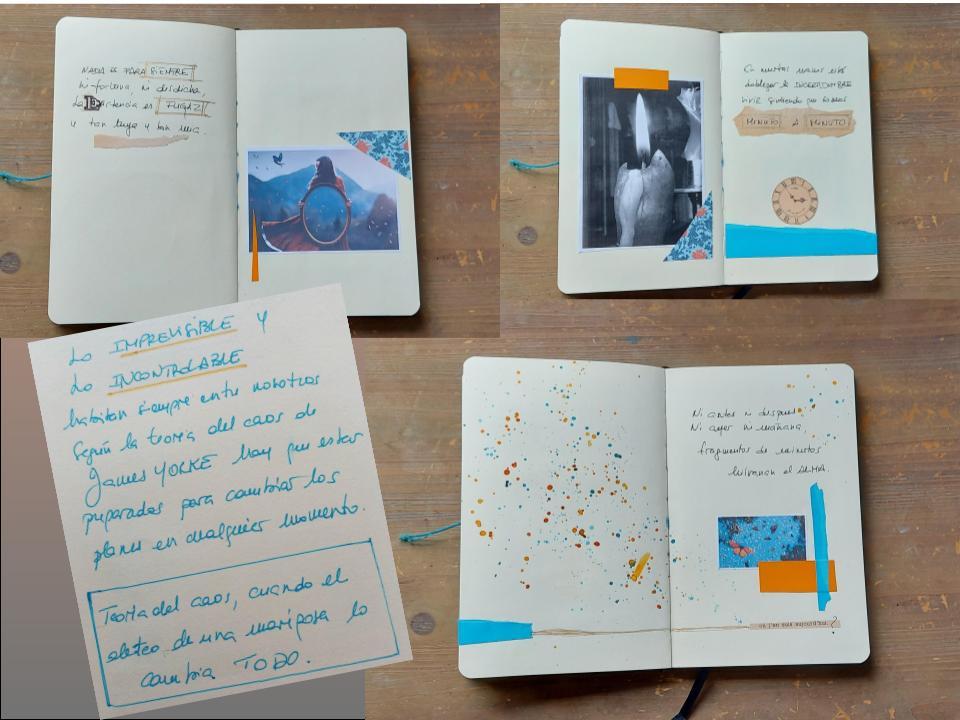 NADA ES PARA SIEMPRE
ni fortuna, ni desdicha,
La Existencia es FUGAZ
y tan tuya y tan mía.
En nuestras manos está
doblegar la INCERTIDUMBRE
vivir sintiendo que somos
MINUTO A MINUTO
Lo IMPREVISIBLE y
Lo INCONTROLABLE
habitan siempre entre nosotros
Según la teoría del caos de
James YORKE hay que estar
preparados para cambiar los
planes en cualquier momento.
Teoría del caos, cuando el
aleteo de una mariposa lo
cambia TODO.
Ni antes ni después
Ni ayer ni mañana
fragmentos de minutos
hilvanan el ALMA.